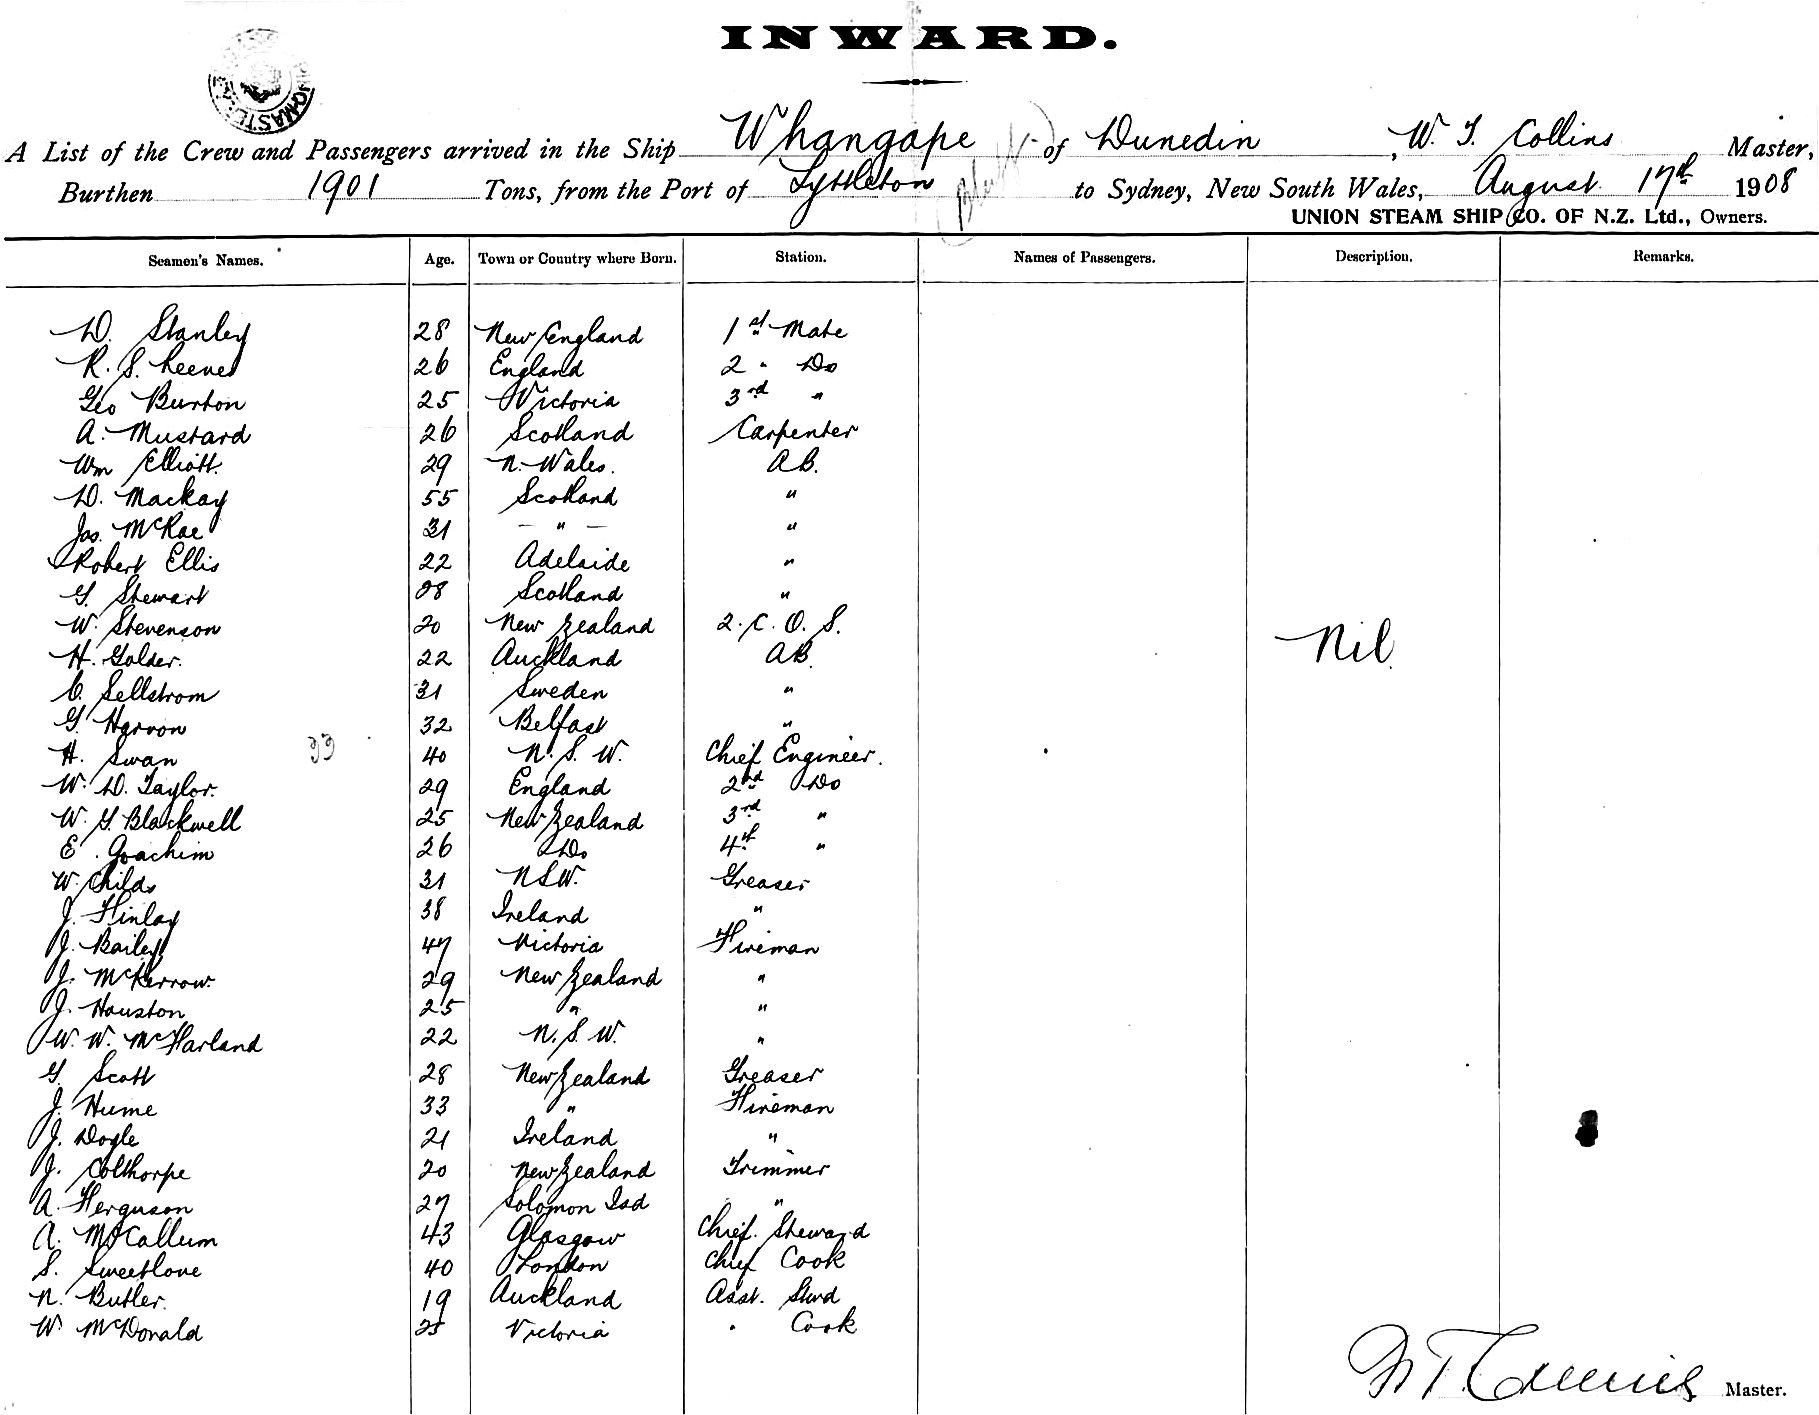 INWARD.
A List of the Crew and Passengers arrived in the Ship Whangape of Dunedin, W. T. Collins Master,
Burthen 1901 Tons, from the Port of Lyttleton to Sydney, New South Wales, August 17th 1908
UNION STEAM SHIP CO. OF N.Z. Ltd., Owners.
Seamen's Names. Age. Town or Country where Born. Station. Names of Passengers. Description. Remarks.
D. Stanley 28 New England 1st Mate
R. S. Keene 26 England 2 " Do
Geo Burton 25 Victoria 3rd "
A. Mustard 26 Scotland Carpenter
Wm Elliott. 29 N. Wales. A.B.
D. Mackay 55 Scotland "
Jas. McRae 31 — " — "
Robert Ellis 22 Adelaide "
G. Stewart 28 Scotland "
W. Stevenson 20 New Zealand 2. C. O. S.
H. Golder. 22 Auckland AB. Nil.
C. Sellstrom 31 Sweden "
G. Harvon 32 Belfast "
H. Swan 40 N. S. W. Chief Engineer.
W. D. Taylor. 29 England 2nd Do
W. G. Blackwell 25 New Zealand 3rd "
E. Joachim 26 Do 4th "
W. Childs 31 NSW. Greaser
J. Finlay 38 Ireland "
J. Bailey 47 Victoria Fireman
J. McKerrow. 29 New Zealand "
J. Houston 25 " "
W. W. McFarland 22 N. S. W. "
G. Scott 28 New Zealand Greaser
J. Hume 33 " Fireman
J. Doyle 21 Ireland "
J. Colthorpe 20 New Zealand Trimmer
A. Ferguson 27 Solomon Isd "
A. McCallum 43 Glasgow Chief. Steward
S. Sweetlove 40 London Chief Cook
N. Butler. 19 Auckland Asst. Stwd
W. McDonald 25 Victoria " Cook
W T Collins Master.